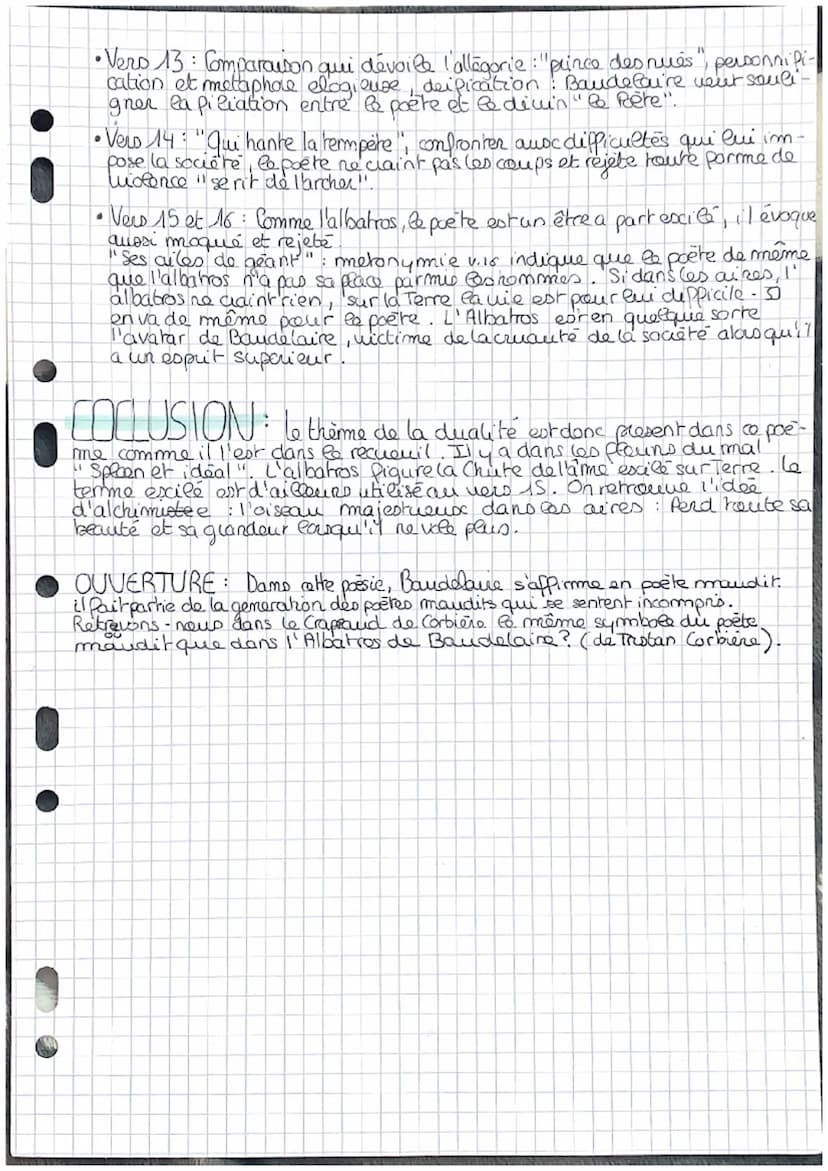 • Vers 13 : Comparaison qui dévoile l'allégorie : "prince des nués", personnifi-
cation et métaphore élogieuse, deification : Baudelaire veut souli-
gner la filiation entre le poète et le divin "le Poète".
• Vers 14 : "Qui hante la tempête", confronter aux difficultés qui lui im-
pose la société, le poète ne craint pas les coups et rejète toute forme de
violence "se rit de l'archer".
• Vers 15 et 16 : Comme l'albatros, le poète est un être a part exilé, il évoque
aussi moqué et rejeté.
"Ses ailes de géant" : metonymie v.16 indique que le poète de même
que l'albatros n'a pas sa place parmis les hommes. Si dans les aires, l'
albatros ne craint rien, sur la Terre la vie est pour lui difficile. Il
en va de même pour le poète. L'Albatros est en quelque sorte
l'avatar de Baudelaire, victime de la cruauté de la société alors qu'il
a un esprit supérieur.
COCLUSION : le thème de la dualité est donc présent dans ce poè-
me comme il l'est dans le recueuil. Il y a dans les fleurs du mal
"Spleen et idéal". L'albatros figure la Chute de l'âme exilé sur Terre. Le
terme exilé est d'ailleurs utilisé au vers 15. On retrouve l'idée
d'alchimie : l'oiseau majestueux dans les aires : Perd toute sa
beauté et sa grandeur lorsqu'il ne vole plus.
OUVERTURE : Dans cette poésie, Baudelaire s'affirme en poète maudit.
il fait partie de la generation des poètes maudits qui se sentent incompris.
Retrouvons-nous dans le Crapaud de Corbière le même symbole du poète
maudit que dans l'Albatros de Baudelaire ? (de Tristan Corbière).